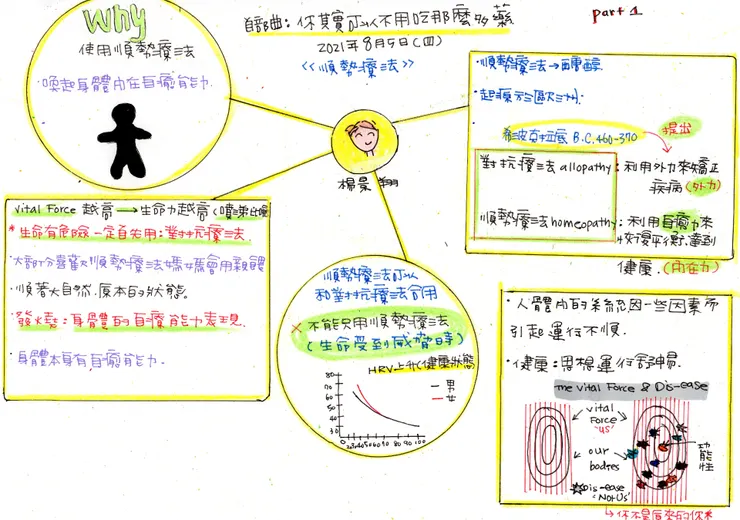 Why
使用順勢療法
·喚起身體內在自癒能力.
首部曲：你其實可以不用吃那麼多藥
2021年8月5日(四)
<<順勢療法>>
part 1
楊景翔
·順勢療法→醣醇
·起源於歐洲.
希波克拉底 B.C.460-370
提出
對抗療法 allopathy：利用外力來矯正
疾病(外力)
順勢療法homeopathy：利用自癒力來
恢復平衡,達到
健康.(內在力)
vital Force 越高→生命力越高
*生命有危險一定首先用：對抗療法.
大部分喜歡順勢療法媽媽會用親餵
·順著大自然.原本的狀態。
·發燒：身體的自療能力表現.
·身體本身有自癒能力.
順勢療法可以
和對抗療法合用
×不能只用順勢療法
(生命受到威脅時)
HRV上升(健康狀態
80
70
60
50
40
30
0 20 30 40 50 60 80 90 100
男
女
·人體內的系統因一些因素所
引起運行不順.
·健康：思想運行舒暢.
The vital Force & Dis-ease
vital
Force
"us"
our
bodies
Dis-ease
"Not Us"
功能性
↳你不是原來的你*